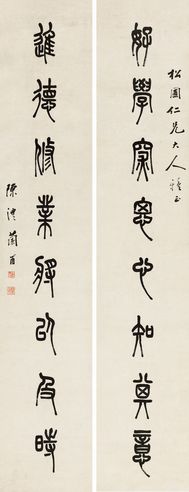 松圃仁兄大人雅正
好學深思心知其意
進德修業將以及時
陳澧蘭甫